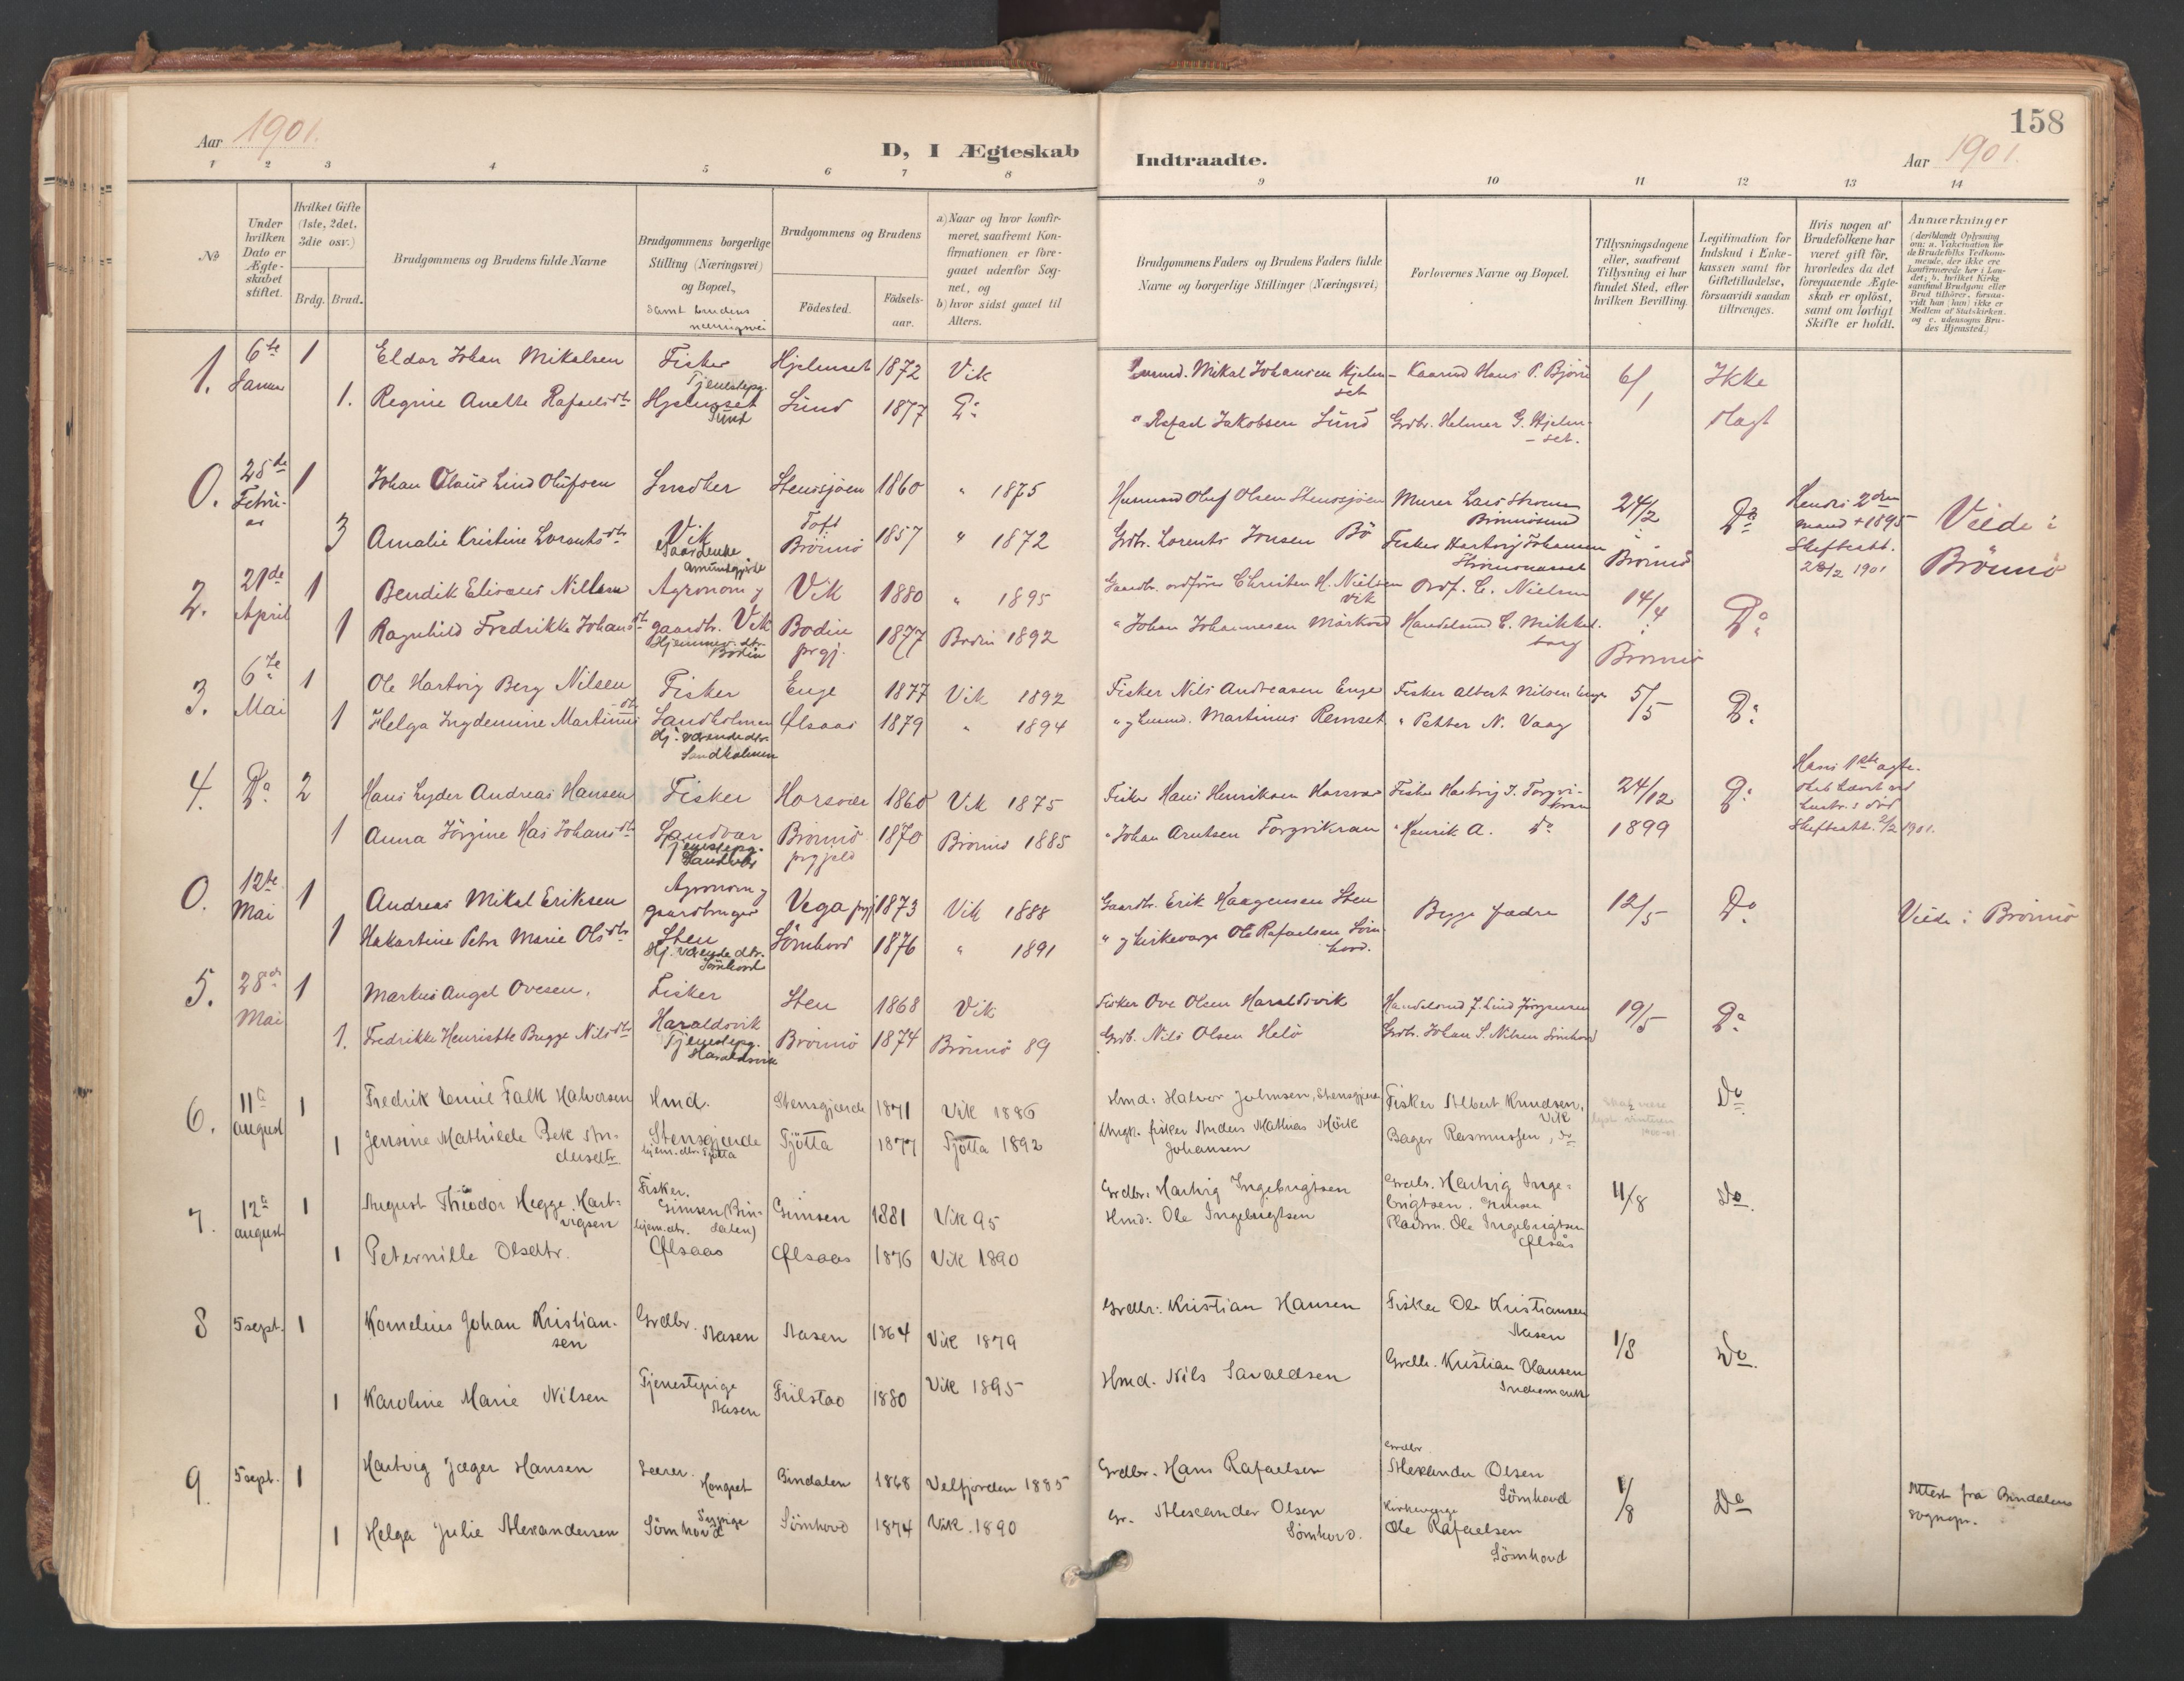 158
Aar 1901.
D, I Ægteskab
Indtraadte.
Aar 1901.
1 2 3 4 5 6 7 8
9 10 11 12 13 14
№
Under hvilken Dato er Ægteskabet stiftet.
Hvilket Gifte (1ste, 2det, 3die osv.)
Brdg. Brud.
Brudgommens og Brudens fulde Navne
Brudgommens borgerlige Stilling (Næringsvei) og Bopæl,
samt brudens næringsvei
Brudgommens og Brudens
Fødested.
Fødsels-aar.
a) Naar og hvor konfirmeret, saafremt Konfirmationen er foregaaet udenfor Sognet, og
b) hvor sidst gaaet til Alters.
Brudgommens Faders og Brudens Faders fulde Navne og borgerlige Stillinger (Næringsvei)
Forlovernes Navne og Bopæl.
Tillysningsdagene eller, saafremt Tillysning ei har fundet Sted, efter hvilken Bevilling.
Legitimation for Indskud i Enkekassen samt for Giftetilladelse, forsaavidt saadan tiltrænges.
Hvis nogen af Brudefolkene har været gift før, hvorledes da det foregaaende Ægteskab er opløst, samt om lovligt Skifte er holdt.
Anmærkninger
1. 6te Januar 1 Eldor Johan Mikalsen Fisker Hjelmset 1872 Vik
Mikal Johansen Hjelmset Hans P. Bjøru 6/1 Ikke
1. Regine Anette Rafaelsdtr Hjelmset Tjenestepg. Sund Sund 1877 Do
" Rafael Jakobsen Sund Grdbr. Helmer G. Hjelmset. sagt
0. 25de Februar 1 Johan Olaus Lind Olufsen Snedker Stensjøen 1860 " 1875
Husmand Oluf Olsen Stensjøen Murer Lars Strøm Brønøsund 24/2 Do
3 Amalie Kristine Lorentsdtr Vik Toft Brønnø 1857 " 1872
Grdbr. Lorents Jonsen Bø Fisker Hartvig Johansen i Brønnø
Hendes 2den mand + 1895 Skifteatt. 28/2 1901 Viede i Brønnø
2. 21de April 1 Bendik Elisæus Nilsen Agronom g Vik 1880 " 1895
Gaardbr. ordfører Christen H. Nielsen Vik Ordf. C. Nielsen 14/4
1 Ragnhild Fredrikke Johansdtr gaardbr. Vik Hjemmev. dtr. Bodin Bodin prgj. 1877 Bodin 1892
" Johan Johannesen Mørkved Handelsmd. C. Mikkelborg i Brønnø Do
3. 6te Mai 1 Ole Hartvig Berg Nilsen Fisker Enge 1877 Vik 1892
Fisker Nils Andreasen Enge Fisker Albert Nilsen Enge 5/5
1 Helga Ingdemine Martinusdtr Sandholmen Hj. værende dtr. Sandholmen Ølsaas 1879 " 1894
" g husmd. Martinus Remset " Petter N. Vaag Do
4. Do 2 Hans Lyder Andreas Hansen Fisker Horsvær 1860 Vik 1875
Fisker Hans Henriksen Horsvær Fisker Hartvig J. Torgvikran 24/12 Do
1 Anna Jørgine Has Johansdtr Sandvær Tjenestepg. Sandvær Brønnø prgjeld 1870 Brønnø 1885
" Johan Arntsen Torgvikran " Henrik A. do 1899
Skifteatt. 2/2 1901.
0. 12te Mai 1 Andreas Mikal Eriksen Agronom g gaardbruger Vega prgj 1873 Vik 1888
Gaardbr. Erik Haagensen Sten Begge fædre 12/5 Do Viede i Brønnø
1 Hakartine Petra Marie Olsdtr Sten Hj. værende dtr. Sømhovd Sømhovd 1876 " 1891
" g kirkeværge Ole Rafaelsen Sømhovd.
5. 28de Mai 1 Markus Angel Ovesen. Fisker Sten 1868 Vik
Fisker Ove Olsen Haraldsvik Handelsmd J. Lind Jørgensen 19/5 Do
1. Fredrikke Henriette Bugge Nilsdtr Haraldsvik Tjenestepg. Haraldsvik Brønnø 1874 Brønnø 89
Grdb. Nils Olsen Helø Grdbr. Johan S. Nilsen Sømhovd
6. 11te august 1 Fredrik Emil Falk Halvorsen Hmd. Stensgjerde 1871 Vik 1886
Hmd: Halvor Johnsen, Stensgjerde Fisker Albert Knudsen, Vik Do
1 Jensine Mathilde Bek Andersdtr. Stensgjerde hjem. dtr. Tjøtta Tjøtta 1877 Tjøtta 1892
Ungk. fisker Anders Mathias Mørk Johansen Bager Rasmussen, do
7. 12te august 1 August Theodor Hegge Hartvigsen Fisker. Gimsen (Bindalen) Gimsen 1881 Vik 95
Grdbr: Hartvig Ingebrigtsen Grdb. Hartvig Ingebrigtsen. Gimsen 11/8 Do
1 Peternille Olsdtr. hjem. dtr. Ølsaas Ølsaas 1876 Vik 1890
Hmd: Ole Ingebrigtsen Pladsm. Ole Ingebrigtsen Ølsås
8 5 sept. 1 Kornelius Johan Kristiansen Grdbr. Aasen Aasen 1864 Vik 1879
Grdbr: Kristian Hansen Fisker Ole Kristiansen Aasen 1/8 Do.
1 Karoline Marie Nilsen Tjenestepige Aasen 1880 Vik 1895
Hmd. Nils Savaldsen Grdb. Kristian Olausen
9. 5 sept. 1 Hartvig Jæger Hansen Lærer. Hongset Bindalen 1868 Velfjorden 1885
Grdbr. Hans Rafaelsen Grdbr Alexander Olsen Sømhovd 1/8 Do Attest fra Bindalens sognepr.
1 Helga Julie Alexandersen Sypige Sømhovd Sømhovd 1874 Vik. 1890
Gr. Alexander Olsen Sømhovd. Kirkeværge Ole Rafaelsen Sømhovd